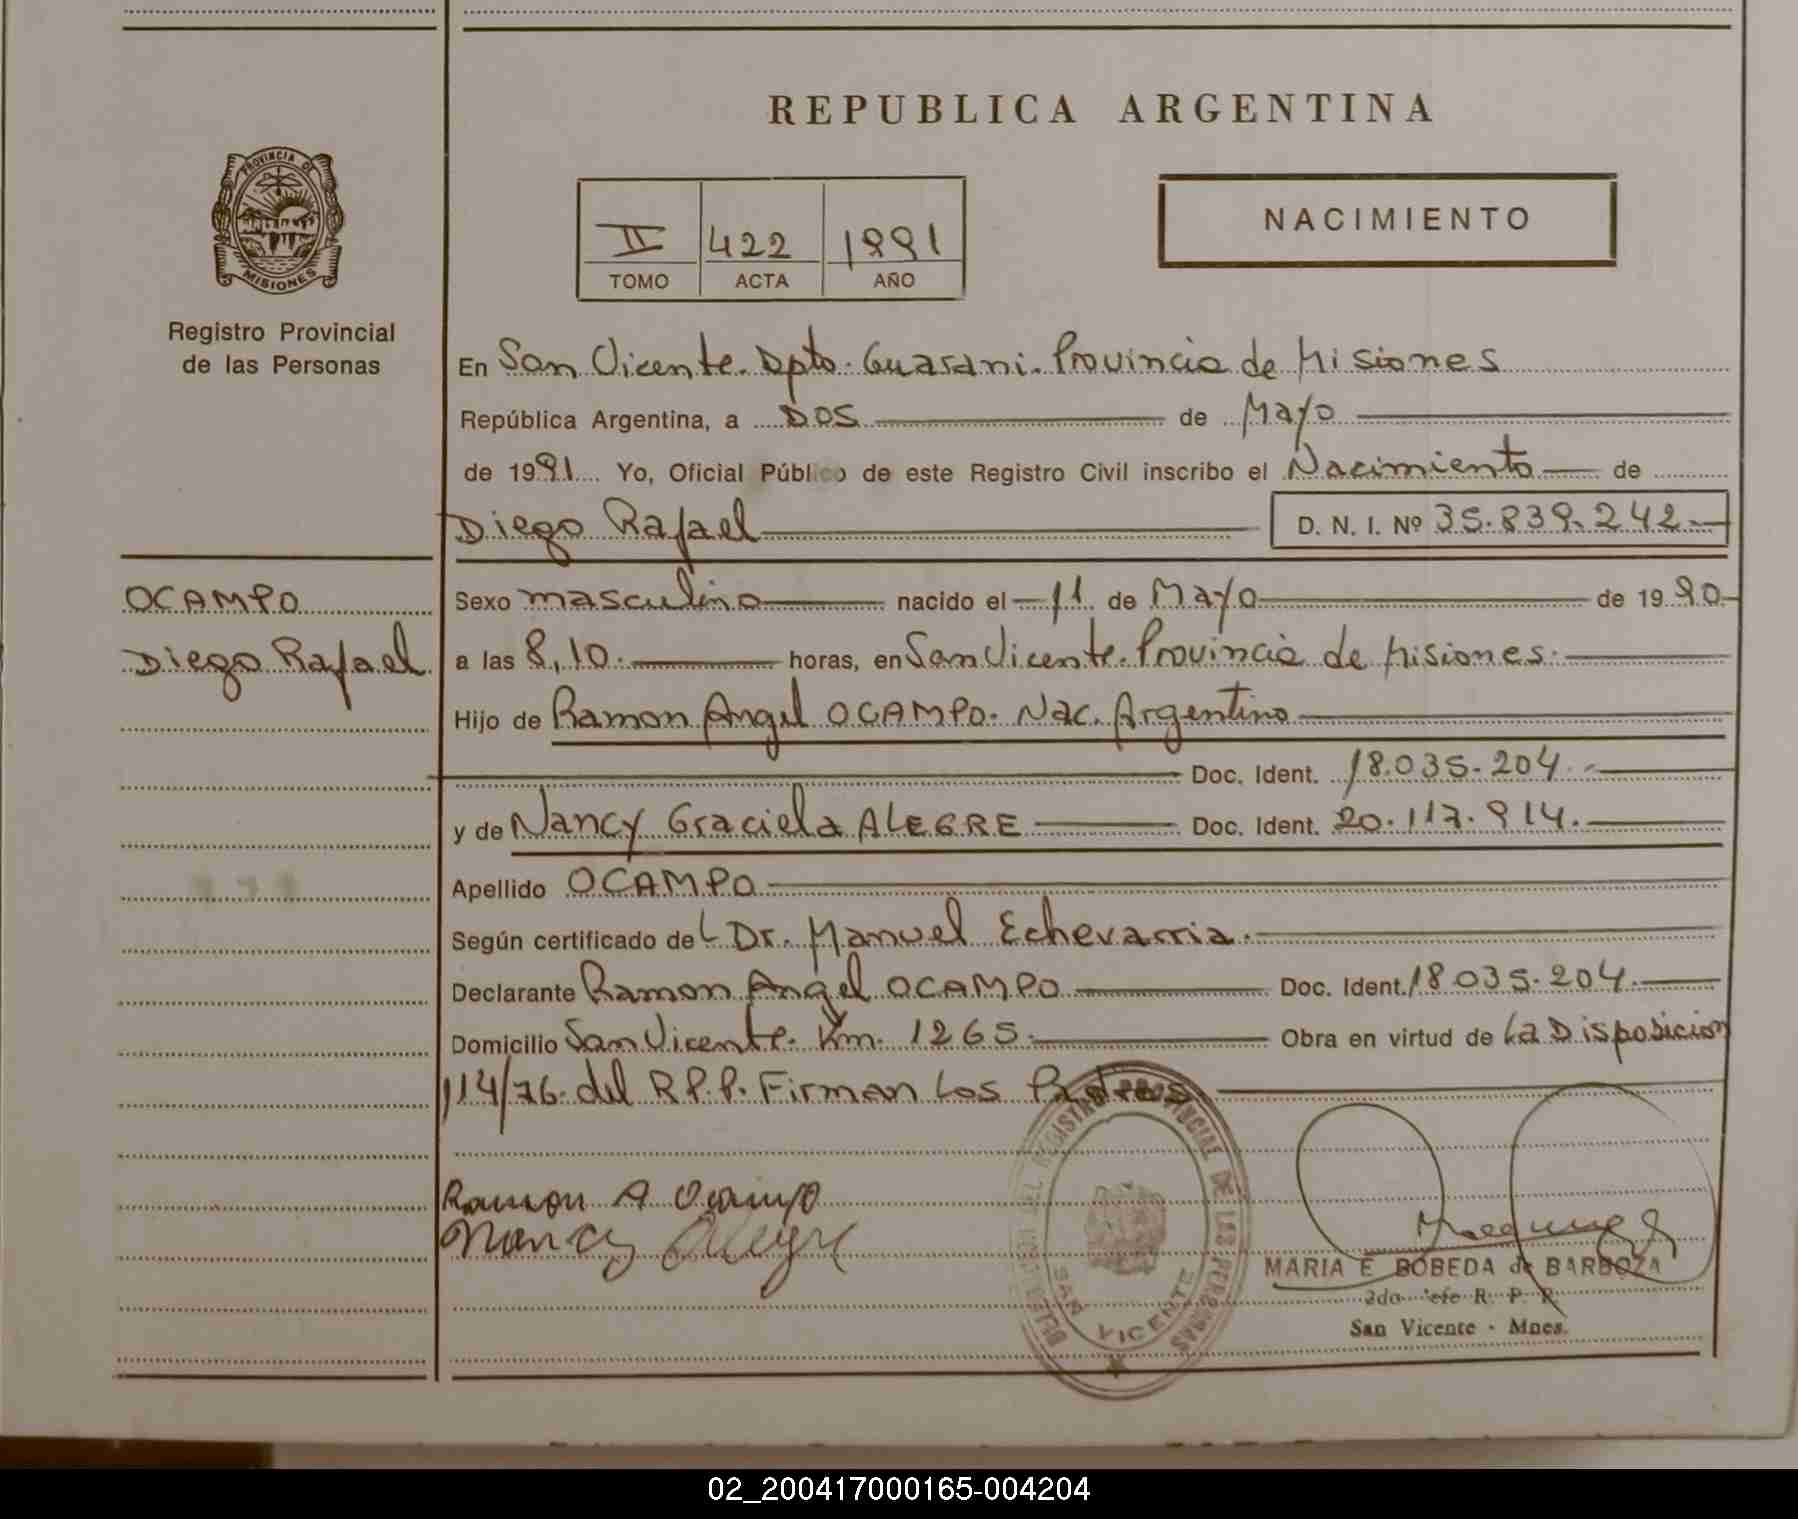 REPUBLICA ARGENTINA
PROVINCIA DE
MISIONES
Registro Provincial
de las Personas
II 422 1991
TOMO ACTA AÑO
NACIMIENTO
En San Vicente. Dpto. Guarani. Provincia de Misiones
República Argentina, a DOS de Mayo
de 1991 Yo, Oficial Público de este Registro Civil inscribo el Nacimiento de
Diego Rafael D. N. I. Nº 35.839.242.
OCAMPO
Diego Rafael
Sexo masculino nacido el 11 de Mayo de 1990
a las 8,10. horas, en San Vicente. Provincia de Misiones.
Hijo de Ramon Angel OCAMPO. Nac. Argentino
Doc. Ident. 18.035.204.
y de Nancy Graciela ALEGRE Doc. Ident. 20.117.914.
Apellido OCAMPO
Según certificado del Dr. Manuel Echevarria.
Declarante Ramon Angel OCAMPO Doc. Ident. 18.035.204.
Domicilio San Vicente. Km. 1265. Obra en virtud de La Disposicion
114/76. del R.P.P. Firman Los Padres
Ramon A Ocampo
Nancy Alegre
DEL REGISTRO PROVINCIAL DE LAS PERSONAS
SAN VICENTE
MARIA E BOBEDA de BARBOZA
2do Jefe R. P. P.
San Vicente - Mnes.
02_200417000165-004204